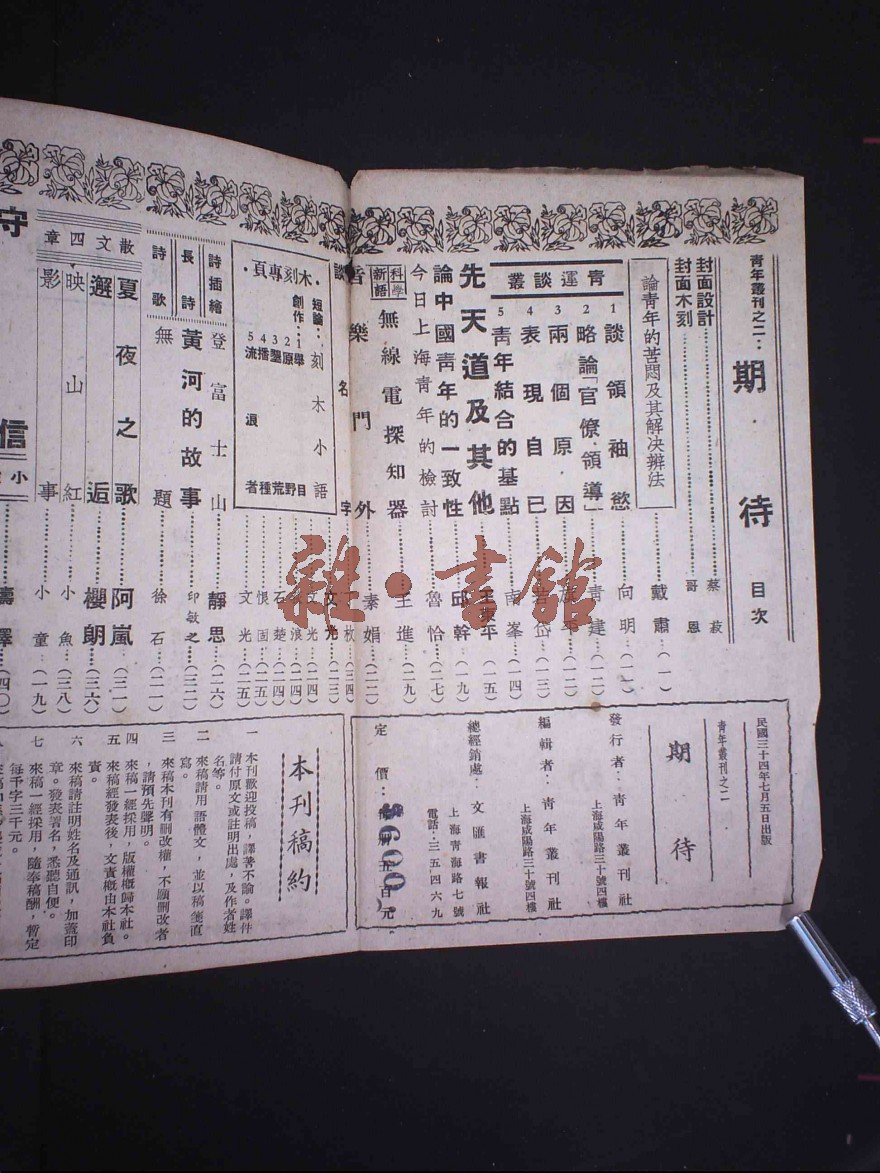 青年叢刊之二：期・待 目次
封面設計……蔡菽
封面木刻……哥恩
論青年的苦悶及其解决辨法……戴肅…(一)
青運談叢
1 談領袖慾……向明…(一一)
2 略論「官僚領導」……青建…(一二)
3 兩個原因
4 表現自已……(一三)
5 靑年結合的基點……南峯…(一四)
先天道及其他……(一五)
論中國靑年的一致性……邱幹…(一九)
今日上海靑年的檢討……魯恰…(二七)
科學新語
無線電探知器……王進…(二九)
音樂門外……素娟…(二二)
談名字……(三四)
・木刻專頁・
短論：刻木小語……文光…(二三)
創作：1 舉目
2 原野
3 墾荒
4 播種
5 流浪者……文光…(二五)
詩插繪
登富士山……靜思…(二六)
長詩
黃河的故事……印敏之…(三二)
詩歌
無題……徐石…(二一)
散文四章
夏夜之歌……阿嵐…(三一)
邂逅……櫻朗…(三六)
映山紅……小魚…(三八)
影事……小童…(一九)
守信……(四〇)
民國三十四年七月五日出版
青年叢刊之二
期待
發行者：靑年叢刊社
上海咸陽路三十號四樓
編輯者：靑年叢刊社
上海咸陽路三十號四樓
總經銷處：文匯書報社
上海靑海路七號
電話：三五四六九
定價：每册五百元
$600
本刊稿約
一 本刊歡迎投稿，譯著不論。譯件
請付原文或註明出處，及作者姓
名等。
二 來稿請用語體文，並以稿箋直
寫。
三 來稿本刊有删改權，不願删改者
，請預先聲明。
四 來稿一經採用，版權概歸本社。
五 來稿經發表後，文責概由本社負
責。
六 來稿請註明姓名及通訊，加蓋印
章。發表署名，悉聽自便。
七 來稿一經採用，隨奉稿酬，暫定
每千字三千元。
雜・書館